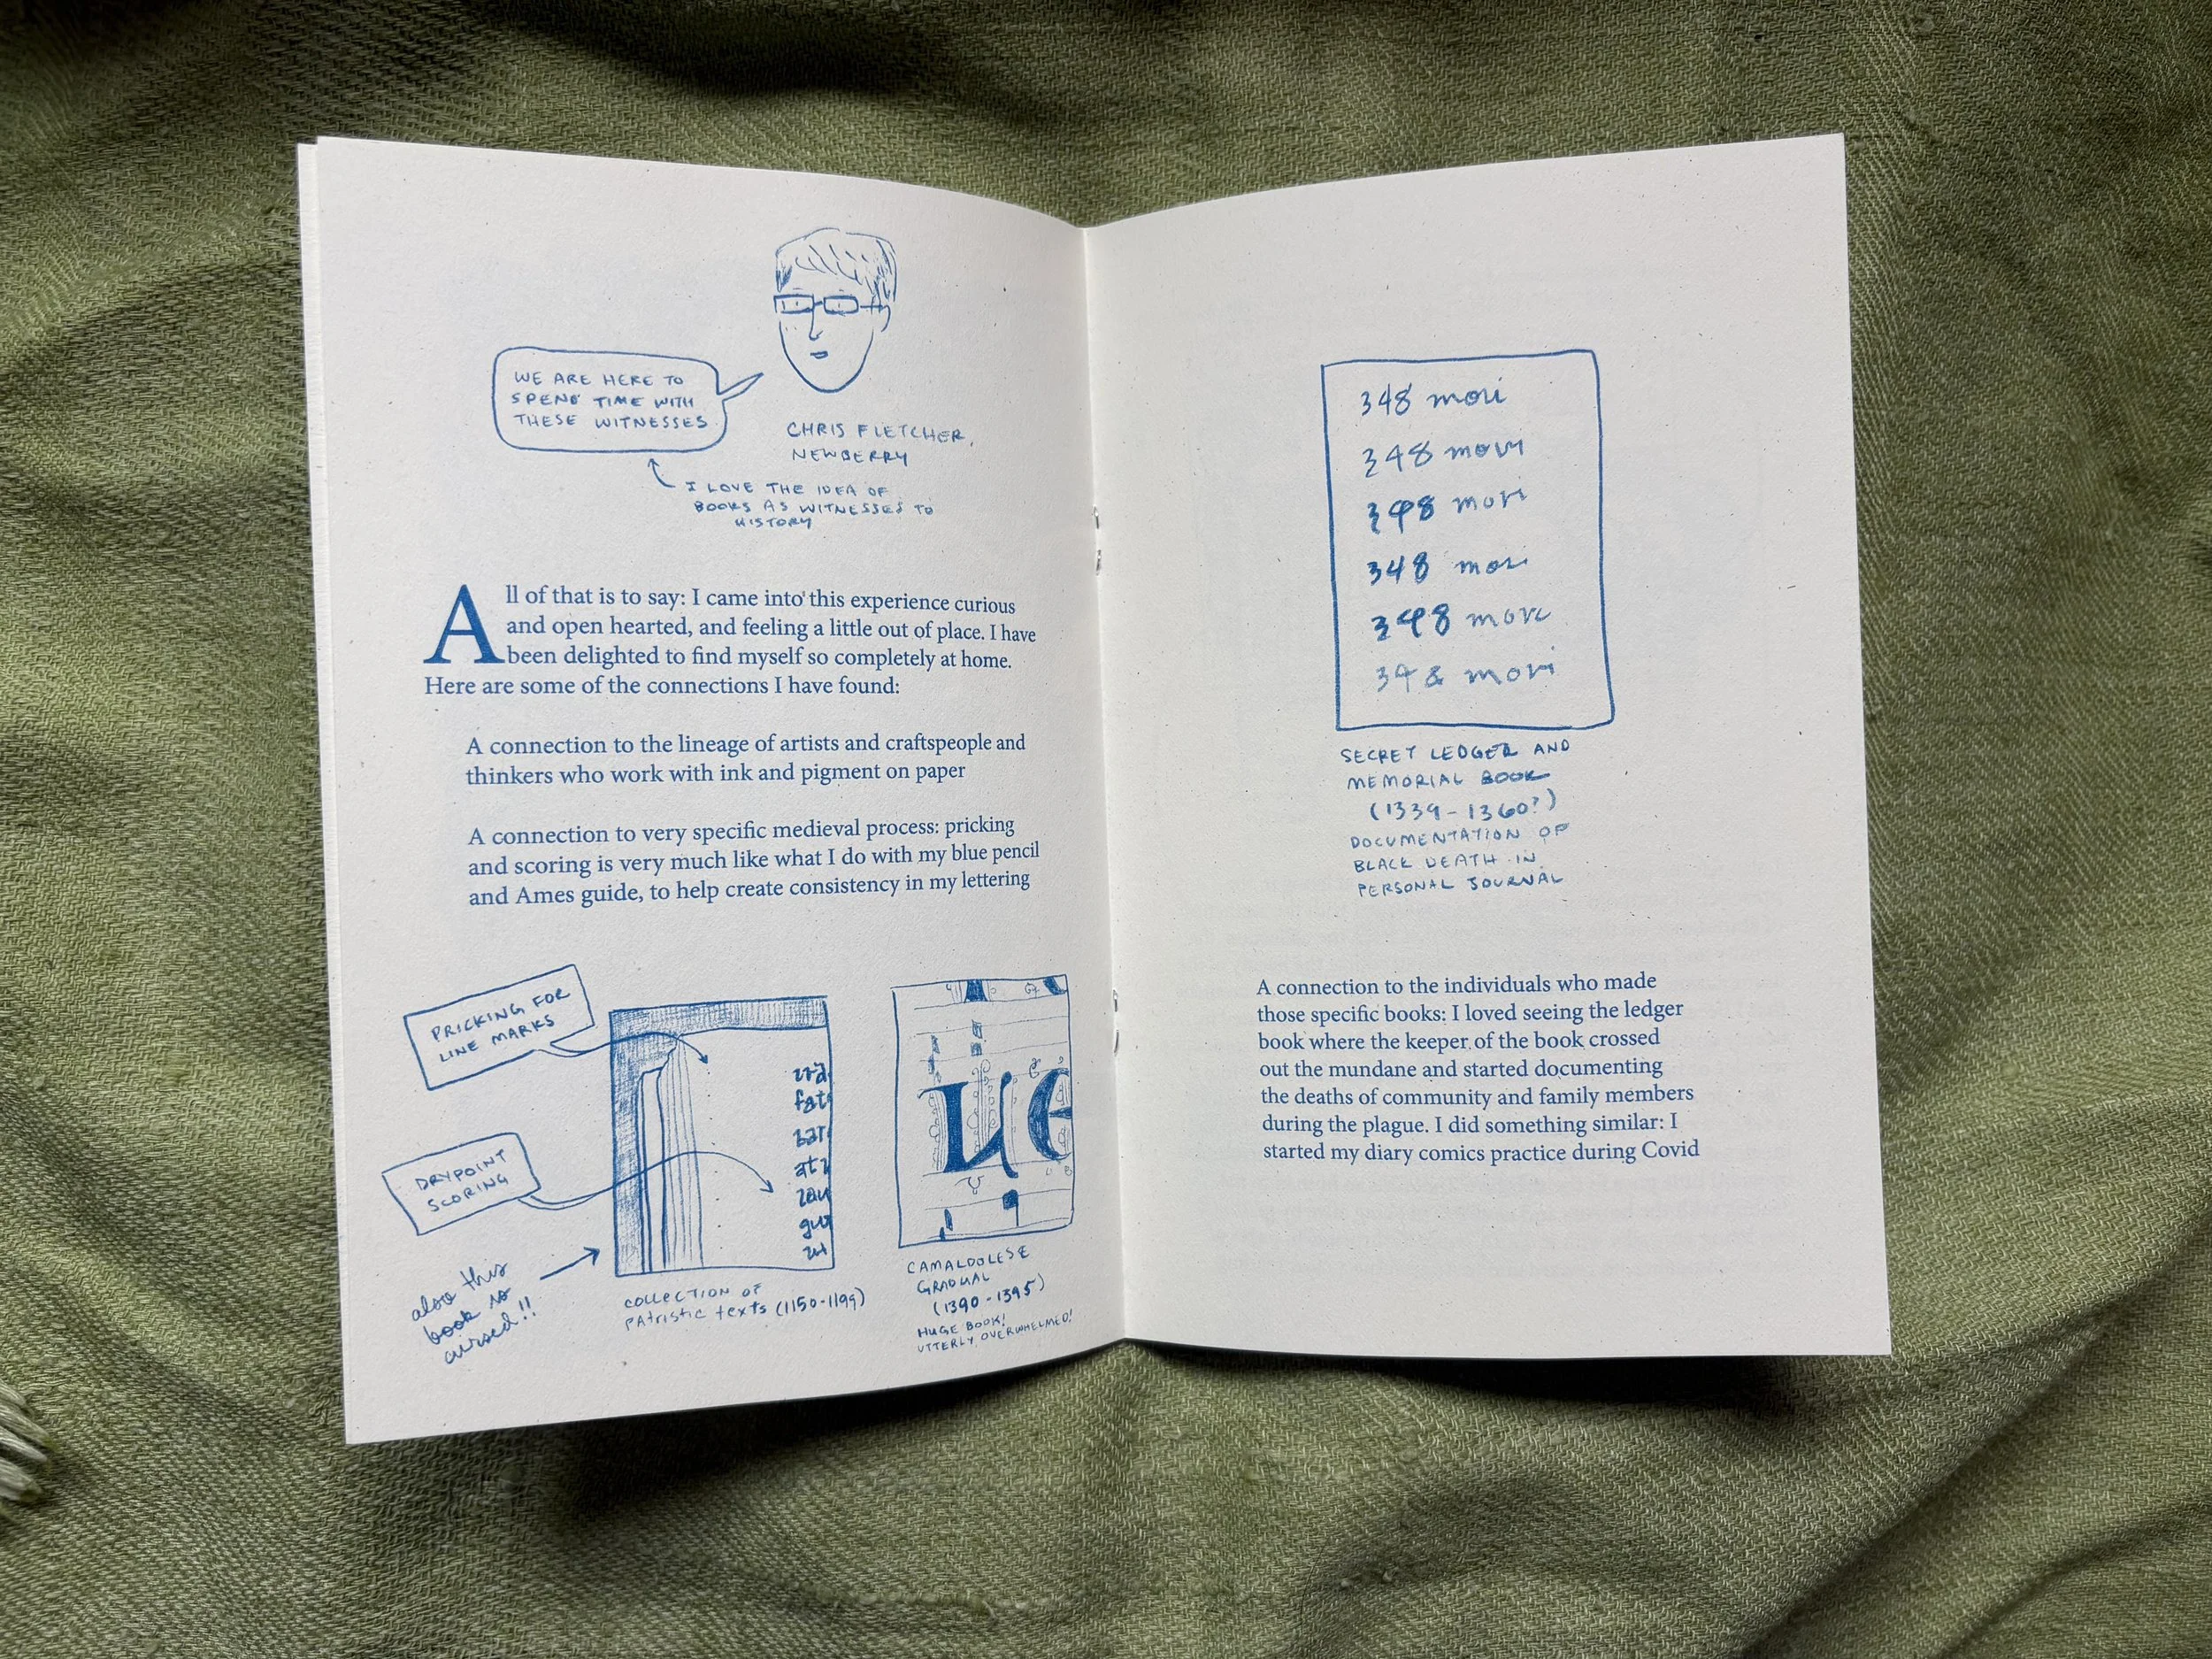 WE ARE HERE TO
SPEND TIME WITH
THESE WITNESSES
CHRIS FLETCHER,
NEWBERRY
I LOVE THE IDEA OF
BOOKS AS WITNESSES TO
HISTORY
All of that is to say: I came into this experience curious
and open hearted, and feeling a little out of place. I have
been delighted to find myself so completely at home.
Here are some of the connections I have found:
A connection to the lineage of artists and craftspeople and
thinkers who work with ink and pigment on paper
A connection to very specific medieval process: pricking
and scoring is very much like what I do with my blue pencil
and Ames guide, to help create consistency in my lettering
PRICKING FOR
LINE MARKS
DRYPOINT
SCORING
also this
book is
cursed!!
fat
bar
gu
COLLECTION OF
PATRISTIC TEXTS (1150-1199)
ue
CAMALDOLESE
GRADUAL
(1390-1395)
HUGE BOOK!
UTTERLY OVERWHELMED!
348 mori
348 mori
348 mori
348 mori
348 mori
348 mori
SECRET LEDGER AND
MEMORIAL BOOK
(1339-1360?)
DOCUMENTATION OF
BLACK DEATH IN
PERSONAL JOURNAL
A connection to the individuals who made
those specific books: I loved seeing the ledger
book where the keeper of the book crossed
out the mundane and started documenting
the deaths of community and family members
during the plague. I did something similar: I
started my diary comics practice during Covid